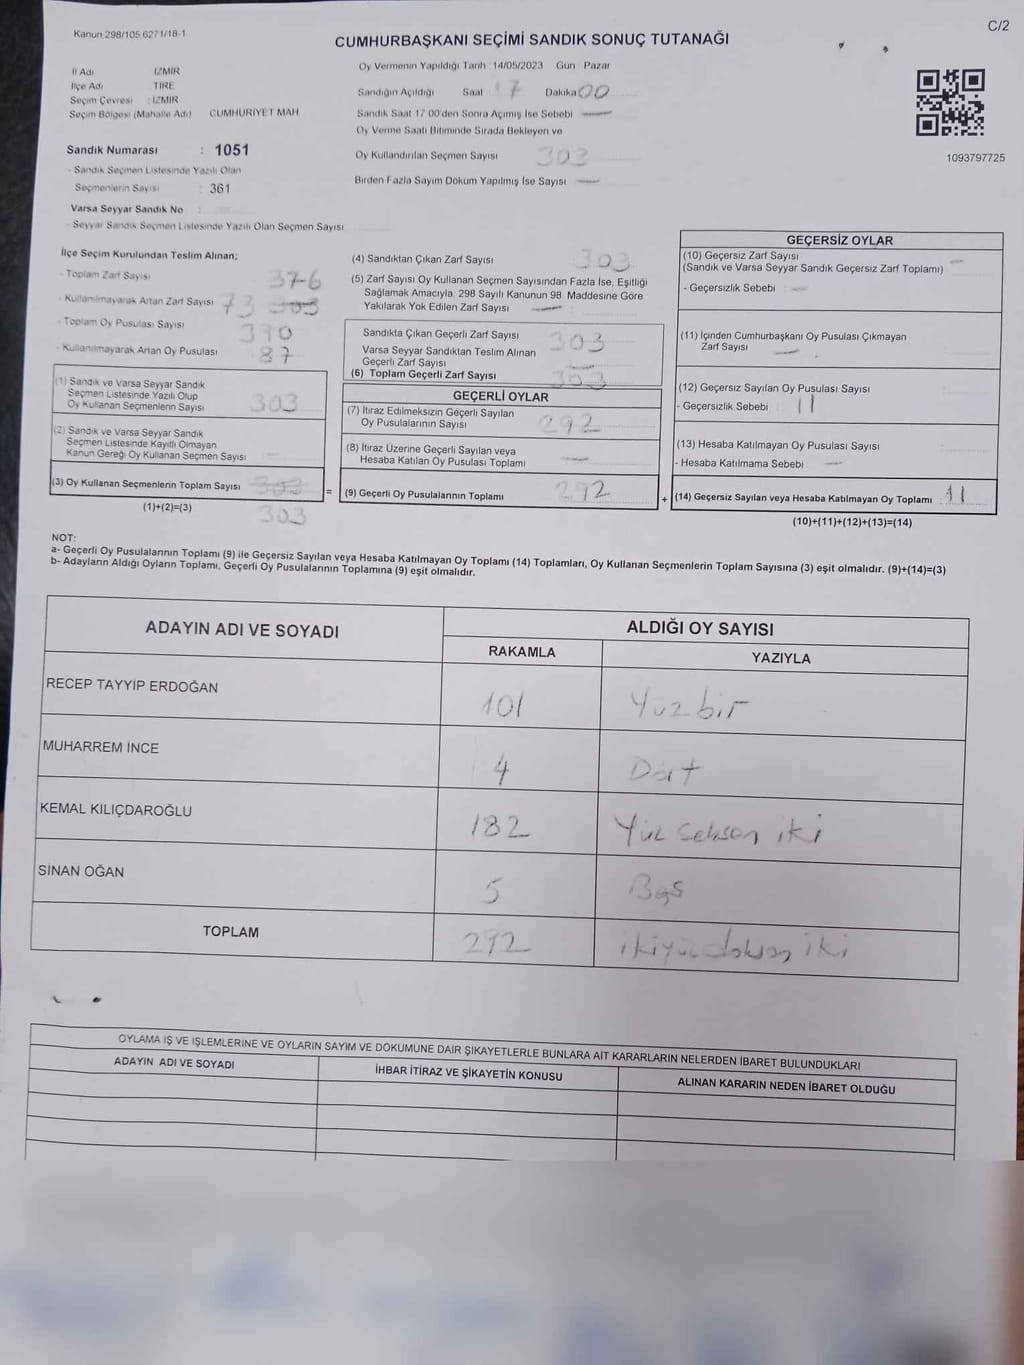 Kanun 298/105 6271/18-1
C/2
CUMHURBAŞKANI SEÇİMİ SANDIK SONUÇ TUTANAĞI
İl Adı İZMİR
İlçe Adı TİRE
Seçim Çevresi : İZMİR
Seçim Bölgesi (Mahalle Adı) CUMHURİYET MAH
Sandık Numarası : 1051
- Sandık Seçmen Listesinde Yazılı Olan
Seçmenlerin Sayısı : 361
Varsa Seyyar Sandık No :
- Seyyar Sandık Seçmen Listesinde Yazılı Olan Seçmen Sayısı
Oy Vermenin Yapıldığı Tarih 14/05/2023 Gün Pazar
Sandığın Açıldığı Saat 17 Dakika 00
Sandık Saat 17 00'den Sonra Açımış İse Sebebi —
Oy Verme Saati Bitiminde Sırada Bekleyen ve
Oy Kullandırılan Seçmen Sayısı 303
Birden Fazla Sayım Döküm Yapılmış İse Sayısı —
1093797725
İlçe Seçim Kurulundan Teslim Alınan;
- Toplam Zarf Sayısı 376
- Kullanılmayarak Artan Zarf Sayısı 73 303
- Toplam Oy Pusulası Sayısı 390
- Kullanılmayarak Artan Oy Pusulası 87
(1) Sandık ve Varsa Seyyar Sandık
Seçmen Listesinde Yazılı Olup
Oy Kullanan Seçmenlerin Sayısı 303
(2) Sandık ve Varsa Seyyar Sandık
Seçmen Listesinde Kayıtlı Olmayan
Kanun Gereği Oy Kullanan Seçmen Sayısı
(3) Oy Kullanan Seçmenlerin Toplam Sayısı 303
(1)+(2)=(3) 303
=
(4) Sandıktan Çıkan Zarf Sayısı 303
(5) Zarf Sayısı Oy Kullanan Seçmen Sayısından Fazla İse, Eşitliği
Sağlamak Amacıyla, 298 Sayılı Kanunun 98. Maddesine Göre
Yakılarak Yok Edilen Zarf Sayısı —
Sandıkta Çıkan Geçerli Zarf Sayısı 303
Varsa Seyyar Sandıktan Teslim Alınan
Geçerli Zarf Sayısı —
(6) Toplam Geçerli Zarf Sayısı 303
GEÇERLİ OYLAR
(7) İtiraz Edilmeksizin Geçerli Sayılan
Oy Pusulalarının Sayısı 292
(8) İtiraz Üzerine Geçerli Sayılan veya
Hesaba Katılan Oy Pusulası Toplamı —
(9) Geçerli Oy Pusulalarının Toplamı 292
+
GEÇERSİZ OYLAR
(10) Geçersiz Zarf Sayısı —
(Sandık ve Varsa Seyyar Sandık Geçersiz Zarf Toplamı)
- Geçersizlik Sebebi : —
(11) İçinden Cumhurbaşkanı Oy Pusulası Çıkmayan
Zarf Sayısı —
(12) Geçersiz Sayılan Oy Pusulası Sayısı
- Geçersizlik Sebebi : 11
(13) Hesaba Katılmayan Oy Pusulası Sayısı
- Hesaba Katılmama Sebebi : —
(14) Geçersiz Sayılan veya Hesaba Katılmayan Oy Toplamı : 11
(10)+(11)+(12)+(13)=(14)
NOT:
a- Geçerli Oy Pusulalarının Toplamı (9) ile Geçersiz Sayılan veya Hesaba Katılmayan Oy Toplamı (14) Toplamları, Oy Kullanan Seçmenlerin Toplam Sayısına (3) eşit olmalıdır. (9)+(14)=(3)
b- Adayların Aldığı Oyların Toplamı, Geçerli Oy Pusulalarının Toplamına (9) eşit olmalıdır.
ADAYIN ADI VE SOYADI
ALDIĞI OY SAYISI
RAKAMLA YAZIYLA
RECEP TAYYİP ERDOĞAN 101 Yüzbir
MUHARREM İNCE 4 Dört
KEMAL KILIÇDAROĞLU 182 Yüz Seksen iki
SİNAN OĞAN 5 Beş
TOPLAM 292 ikiyüz doksan iki
OYLAMA İŞ VE İŞLEMLERİNE VE OYLARIN SAYIM VE DÖKÜMÜNE DAİR ŞİKAYETLERLE BUNLARA AİT KARARLARIN NELERDEN İBARET BULUNDUKLARI
ADAYIN ADI VE SOYADI İHBAR İTİRAZ VE ŞİKAYETİN KONUSU ALINAN KARARIN NEDEN İBARET OLDUĞU